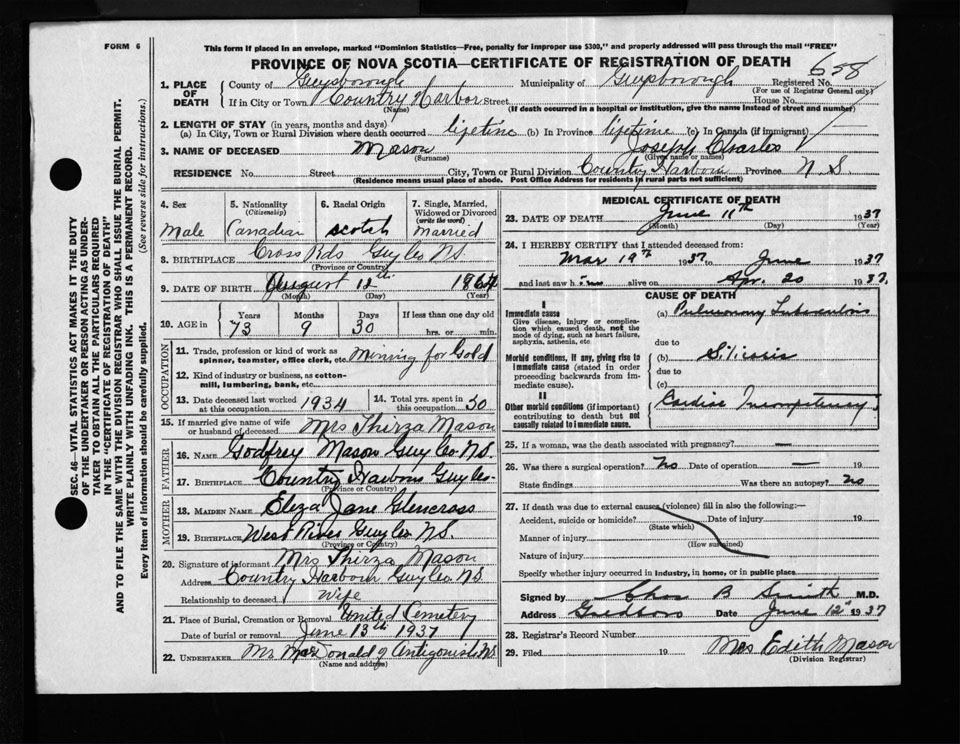 FORM 6
This form if placed in an envelope, marked "Dominion Statistics—Free, penalty for improper use $300," and properly addressed will pass through the mail "FREE"
PROVINCE OF NOVA SCOTIA—CERTIFICATE OF REGISTRATION OF DEATH
638
1. PLACE OF DEATH County of Guysborough Municipality of Guysborough Registered No.
(For use of Registrar General only)
If in City or Town Country Harbor Street House No.
(Name) (If death occurred in a hospital or institution, give the name instead of street and number)
2. LENGTH OF STAY (in years, months and days)
(a) In City, Town or Rural Division where death occurred lifetime (b) In Province lifetime (c) In Canada (if immigrant)
3. NAME OF DECEASED Mason Joseph Charles
(Surname) (Given name or names)
RESIDENCE No. Street City, Town or Rural Division Country Harbour Province N.S
(Residence means usual place of abode. Post Office Address for residents in rural parts not sufficient)
4. Sex Male
5. Nationality (Citizenship) Canadian
6. Racial Origin Scotch
7. Single, Married, Widowed or Divorced (write the word) Married
8. BIRTHPLACE Cross Rds Guy Co NS
(Province or Country)
9. DATE OF BIRTH August 12th 1864
(Month) (Day) (Year)
10. AGE in Years 73 Months 9 Days 30 If less than one day old hrs. or min.
OCCUPATION
11. Trade, profession or kind of work as spinner, teamster, office clerk, etc. Mining for Gold
12. Kind of industry or business, as cotton-mill, lumbering, bank, etc.
13. Date deceased last worked at this occupation 1934
14. Total yrs. spent in this occupation 30
15. If married give name of wife or husband of deceased Mrs Thirza Mason
FATHER
16. NAME Godfrey Mason Guy Co. N.S.
17. BIRTHPLACE Country Harbour Guy Co.
(Province or Country)
MOTHER
18. MAIDEN NAME Eliza Jane Glencross
19. BIRTHPLACE West River Guy Co N.S.
(Province or Country)
20. Signature of informant Mrs Thirza Mason
Address Country Harbour Guy Co NS
Relationship to deceased Wife
21. Place of Burial, Cremation or Removal United Cemetery
Date of burial or removal June 13th 1937
22. UNDERTAKER Mr MacDonald of Antigonish NS
(Name and address)
MEDICAL CERTIFICATE OF DEATH
23. DATE OF DEATH June 11th 1937
(Month) (Day) (Year)
24. I HEREBY CERTIFY that I attended deceased from:
Mar 19th 1937 to June 1937
and last saw him alive on Apr. 20 1937.
CAUSE OF DEATH
I
Immediate cause
Give disease, injury or complication which caused death, not the mode of dying, such as heart failure, asphyxia, asthenia, etc
(a) Pulmonary Tuberculosis
due to
Morbid conditions, if any, giving rise to immediate cause (stated in order proceeding backwards from immediate cause).
(b) Silicosis
due to
(c)
II
Other morbid conditions (if important) contributing to death but not causally related to immediate cause.
Cardiac Incompetency
25. If a woman, was the death associated with pregnancy? —
26. Was there a surgical operation? No Date of operation — 19
State findings Was there an autopsy? No
27. If death was due to external causes (violence) fill in also the following:—
Accident, suicide or homicide? Date of injury 19
(State which)
Manner of injury
(How sustained)
Nature of injury
Specify whether injury occurred in industry, in home, or in public place
Signed by Chas B Smith M.D.
Address Goldboro Date June 12th 1937
28. Registrar's Record Number
29. Filed 19 Mrs Edith Mason
(Division Registrar)
SEC. 46—VITAL STATISTICS ACT MAKES IT THE DUTY
OF THE UNDERTAKER OR PERSON ACTING AS UNDER-
TAKER TO OBTAIN ALL THE PARTICULARS REQUIRED
IN THE "CERTIFICATE OF REGISTRATION OF DEATH"
AND TO FILE THE SAME WITH THE DIVISION REGISTRAR WHO SHALL ISSUE THE BURIAL PERMIT.
WRITE PLAINLY WITH UNFADING INK. THIS IS A PERMANENT RECORD.
Every item of information should be carefully supplied. (See reverse side for instructions.)